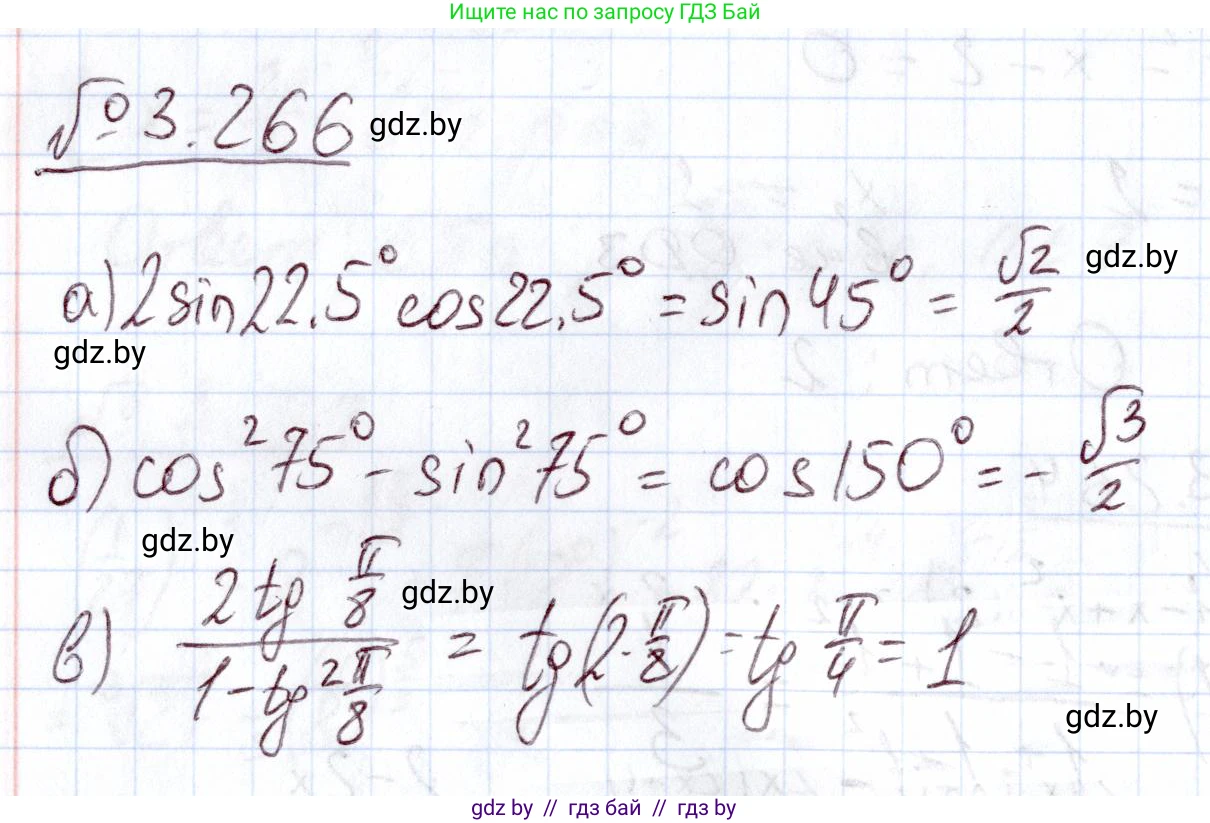 Ищите нас по запросу ГДЗ Бай
№ 3.266 gdz.by
а) 2sin22,5° cos22,5° = sin45° = √2/2 gdz.by
gdz.by
б) cos²75° - sin²75° = cos150° = - √3/2
gdz.by
в) (2tg π/8)/(1-tg² π/8) = tg(2·π/8) = tg π/4 = 1
gdz.by
gdz.by
gdz.by // гдз бай // гдз by